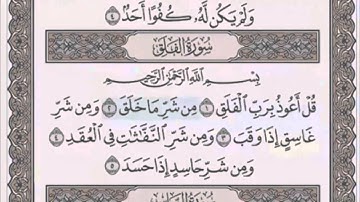 وَلَمْ يَكُن لَّهُۥ كُفُوًا أَحَدٌۢ ٤
سُورَةُ الْفَلَقِ
بِسْمِ اللَّهِ الرَّحْمَٰنِ الرَّحِيمِ
قُلْ أَعُوذُ بِرَبِّ الْفَلَقِ ١ مِن شَرِّ مَا خَلَقَ ٢ وَمِن شَرِّ
غَاسِقٍ إِذَا وَقَبَ ٣ وَمِن شَرِّ النَّفَّٰثَٰتِ فِي الْعُقَدِ ٤
وَمِن شَرِّ حَاسِدٍ إِذَا حَسَدَ ٥